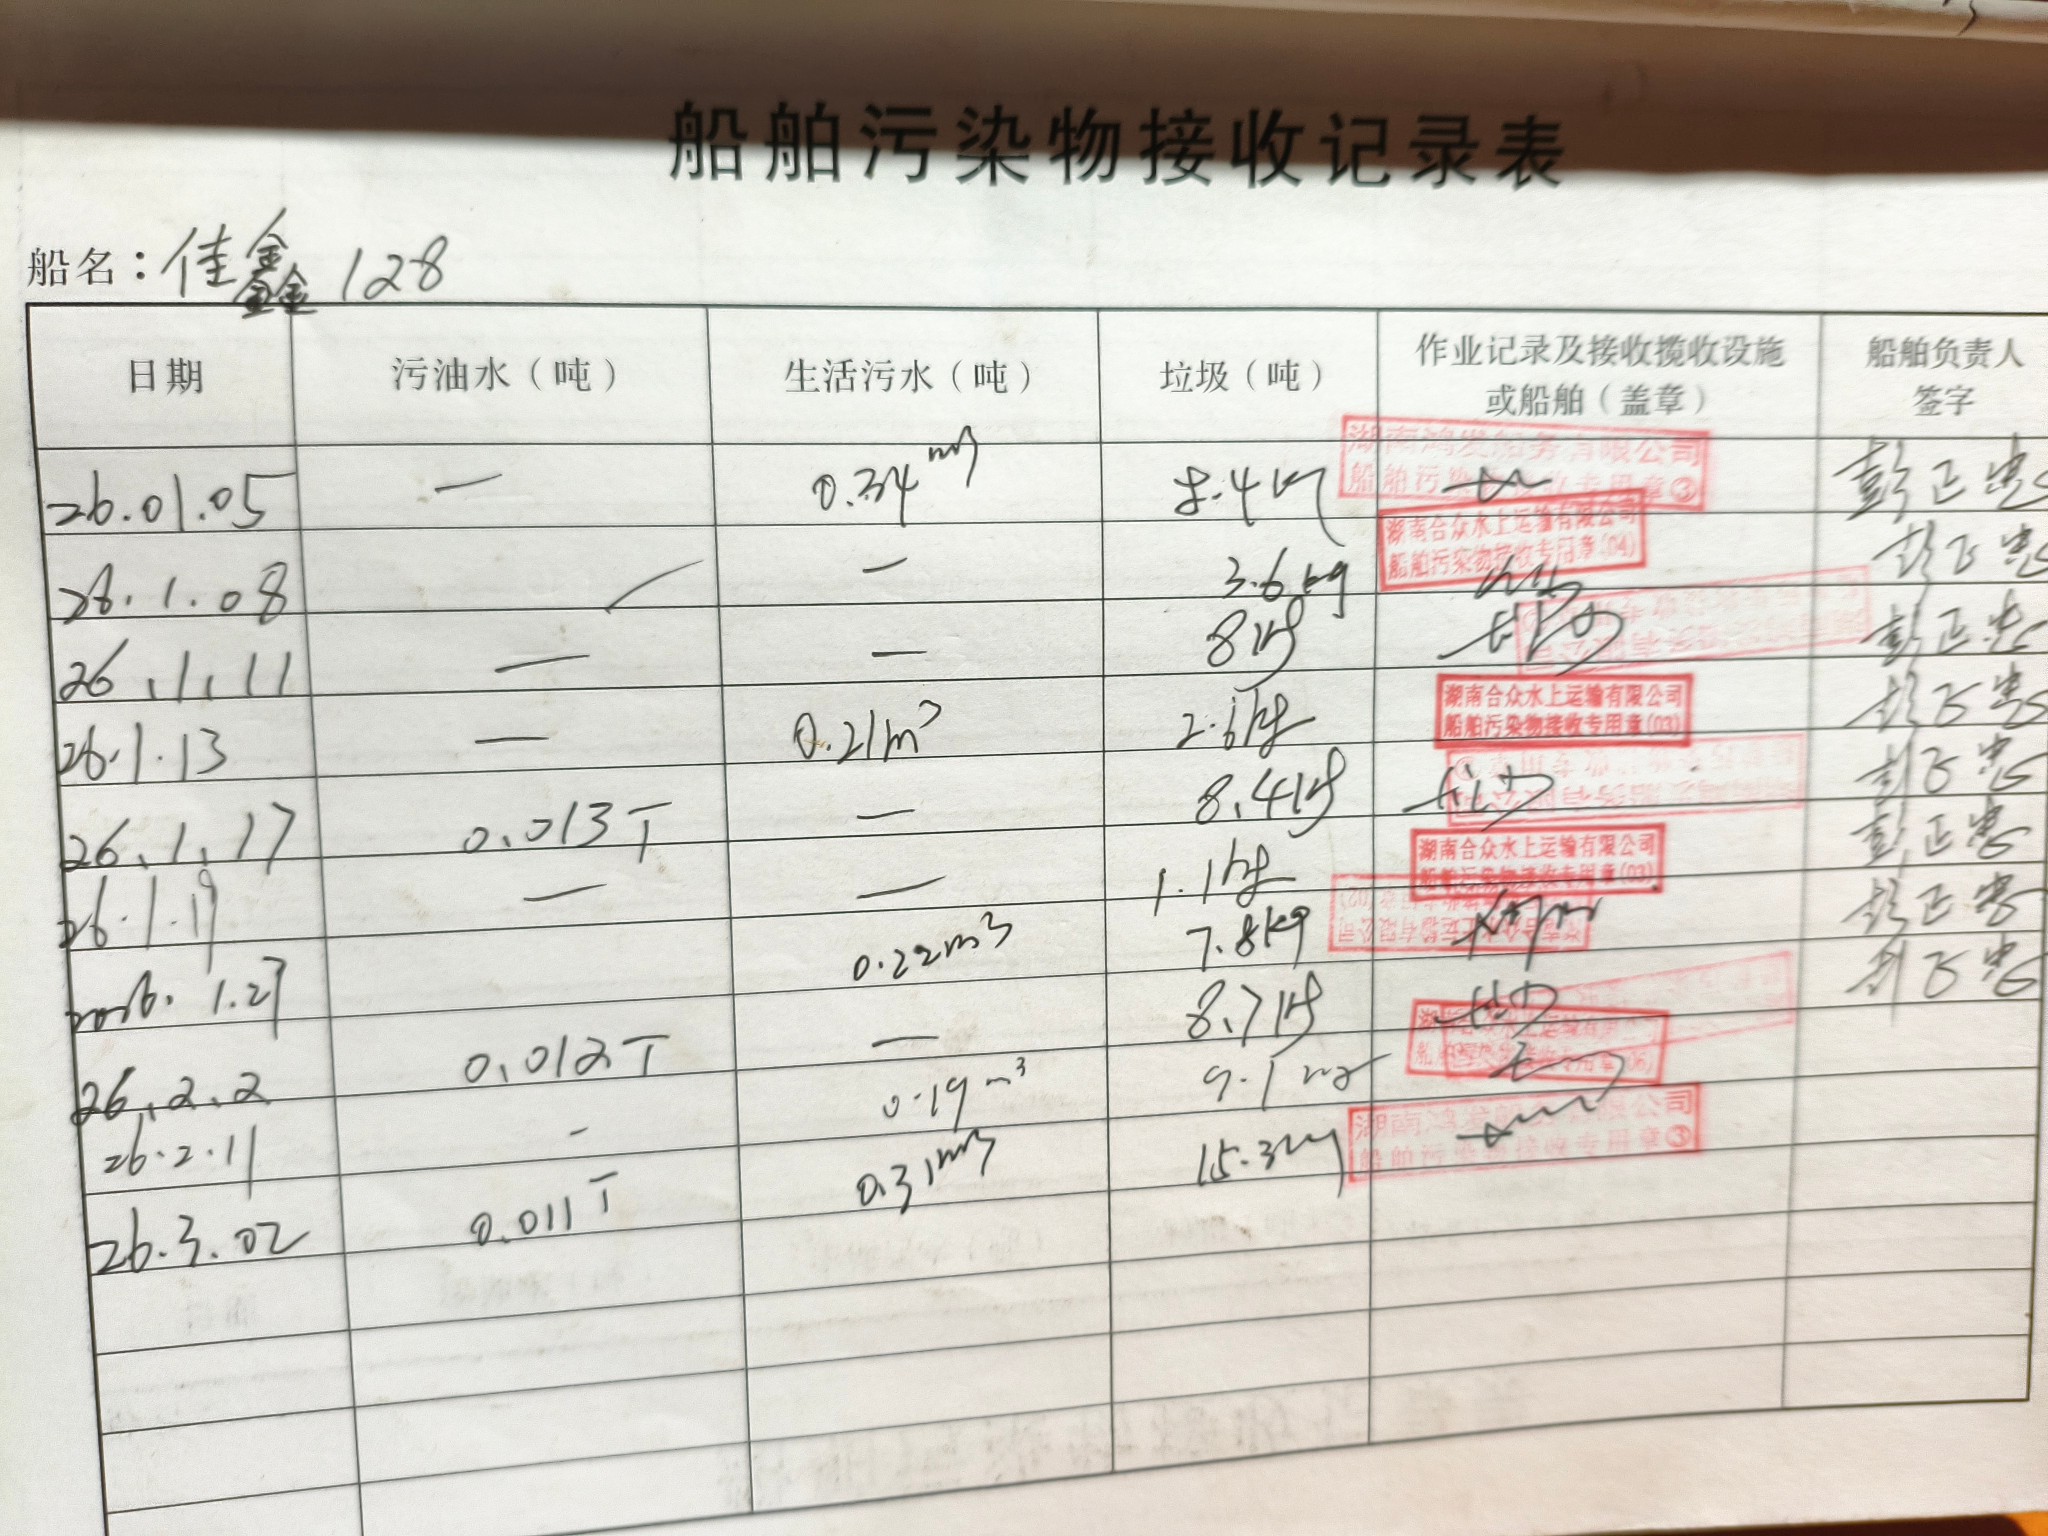 船舶污染物接收记录表
船名：佳鑫128
日期 污油水（吨） 生活污水（吨） 垃圾（吨） 作业记录及接收揽收设施或船舶（盖章） 船舶负责人签字
湖南鸿发船务有限公司
船舶污染物接收专用章③
26.01.05 — 0.34m³ 8.4kg 彭正忠
湖南合众水上运输有限公司
船舶污染物接收专用章(04)
26.1.08 / — 3.6kg 彭正忠
26.1.11 — — 8kg 彭正忠
湖南合众水上运输有限公司
船舶污染物接收专用章(03)
26.1.13 — 0.21m³ 2.6kg 彭正忠
26.1.17 0.013T — 8.4kg 彭正忠
湖南合众水上运输有限公司
船舶污染物接收专用章(03)
26.1.19 — — 1.1kg 彭正忠
2026.1.27 0.22m3 7.8kg 彭正忠
26.2.2 0.012T — 8.7kg 彭正忠
26.2.11 - 0.19m³ 9.1kg
湖南鸿发船务有限公司
船舶污染物接收专用章③
26.3.02 0.011T 0.31m3 15.3kg